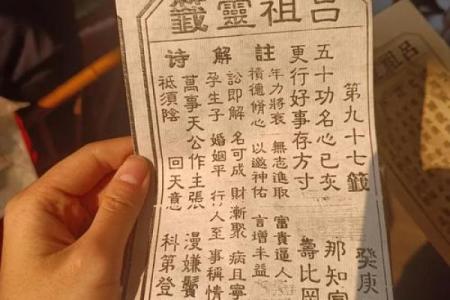 呂祖靈籤
癸庚
第九十七籤
五十功名心已灰 那知
更行好事存方寸 壽比岡
註
年力將衰 無志進取 富貴逼人
積德脩心 以邀神佑 言增丰益
解
訟即解 名可成 財漸聚 病且寧
孕生子 婚姻平 行人至 事稱情
诗
萬事天公作主張 漫嫌鬢
祗須陰 回天意 科第登